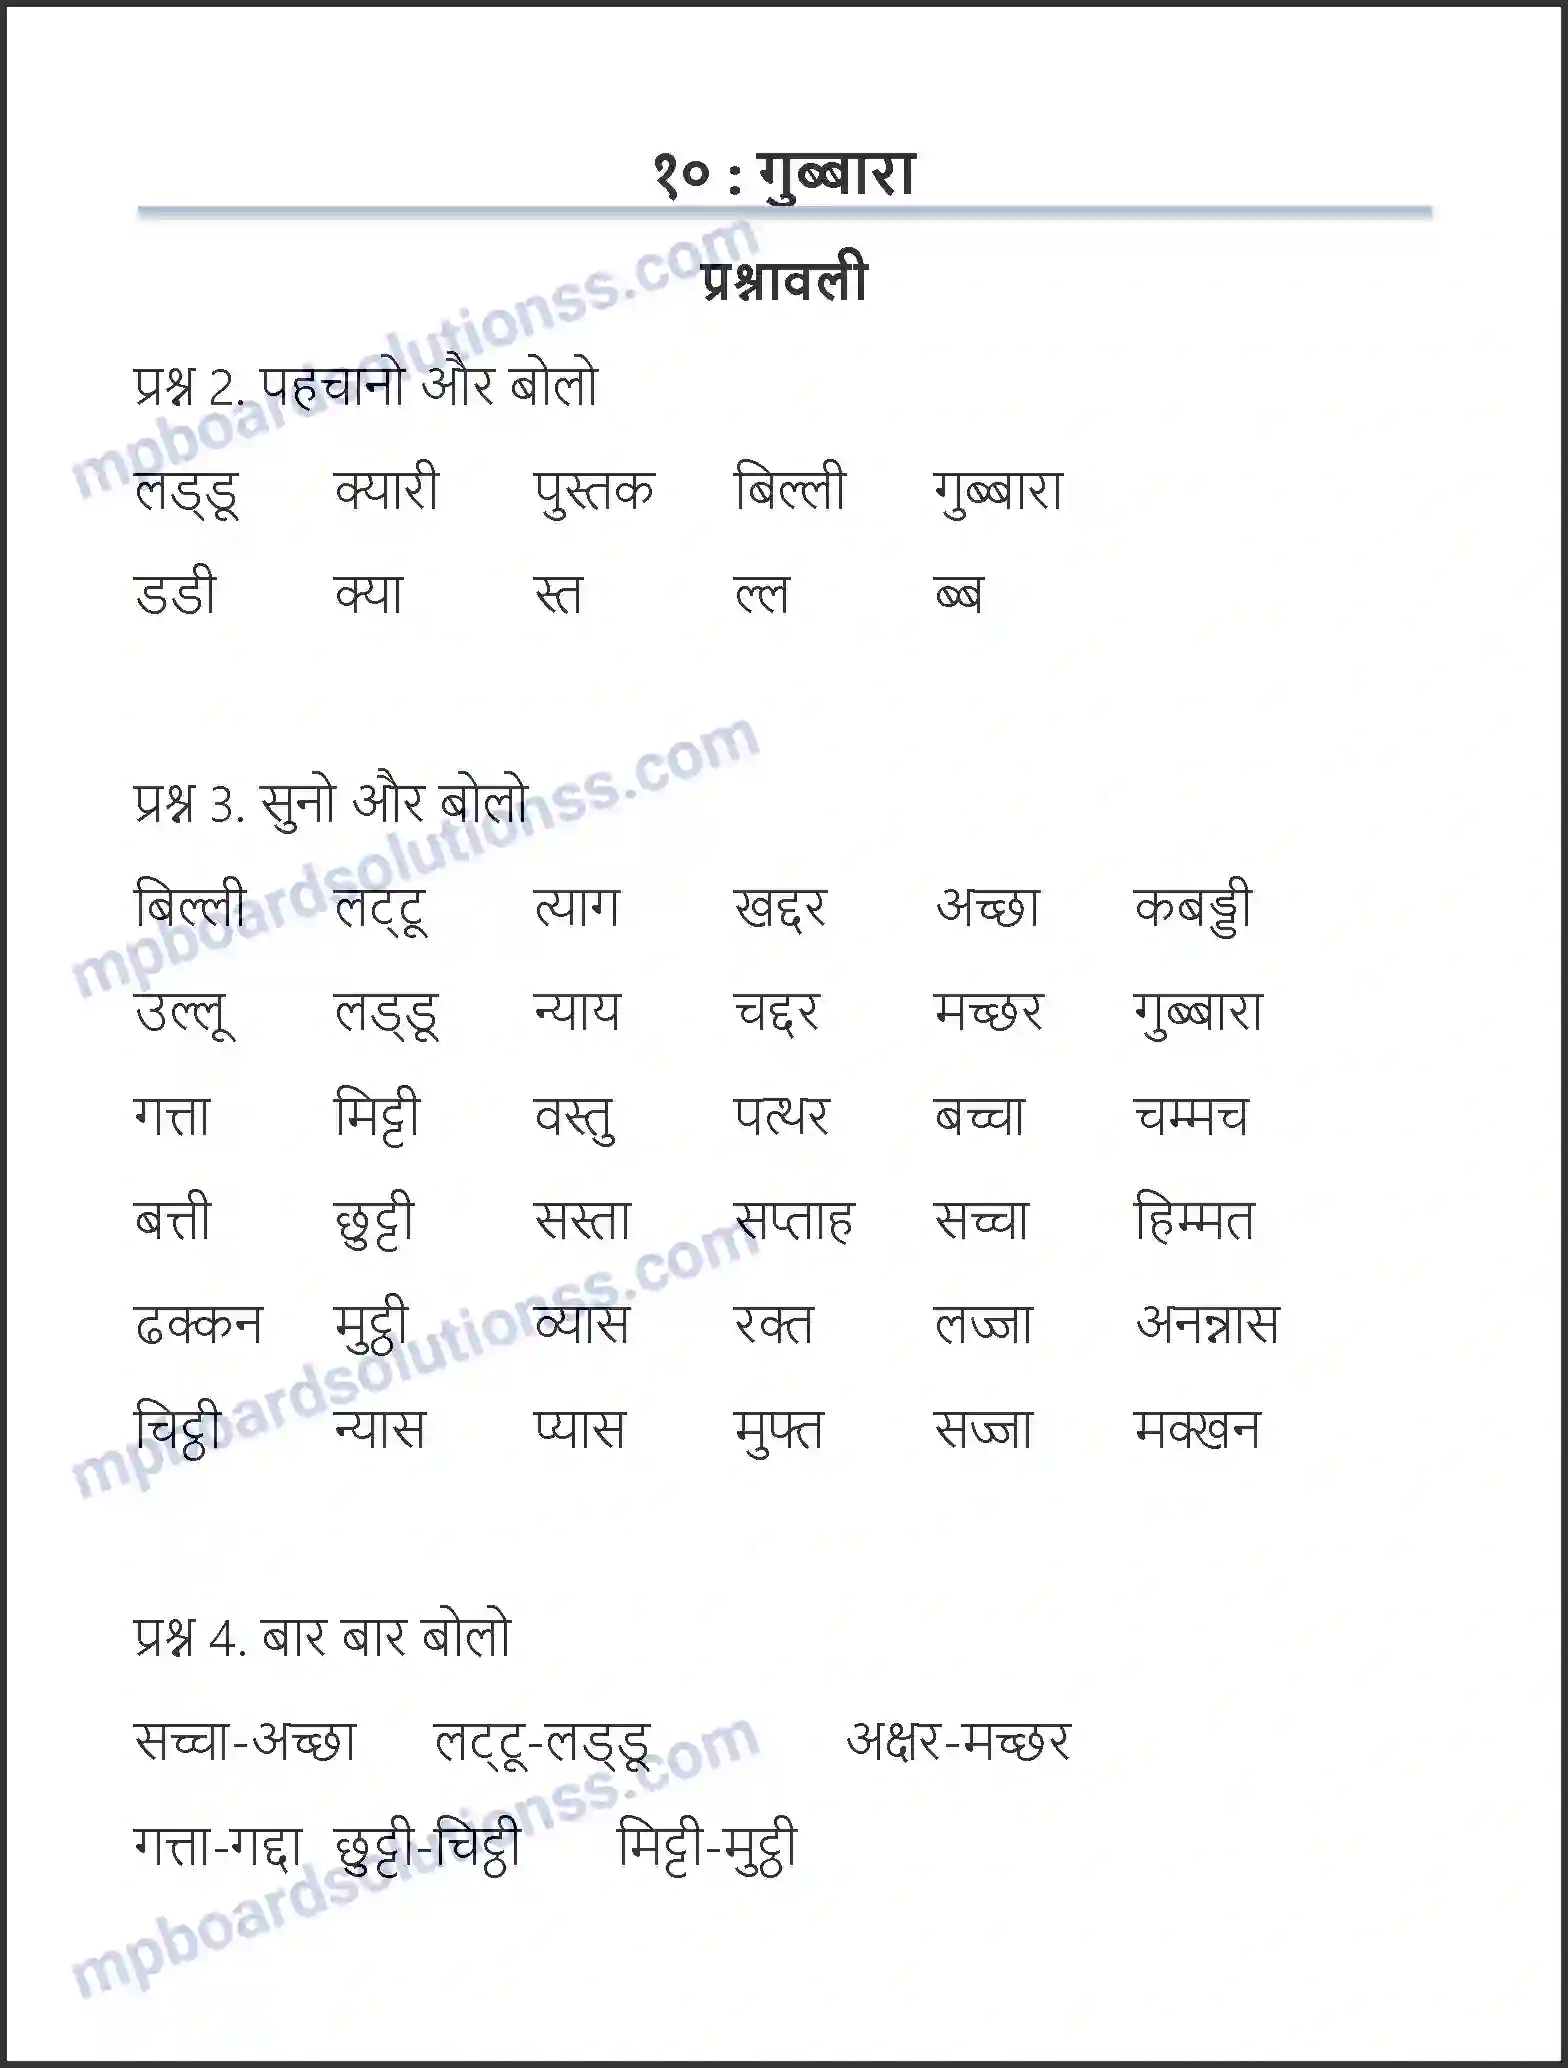 १० : गुब्बारा
प्रश्नावली
प्रश्न 2. पहचानो और बोलो
लड्डू क्यारी पुस्तक बिल्ली गुब्बारा
डडी क्या स्त ल्ल ब्ब
प्रश्न 3. सुनो और बोलो
बिल्ली लट्टू त्याग खद्दर अच्छा कबड्डी
उल्लू लड्डू न्याय चद्दर मच्छर गुब्बारा
गत्ता मिट्टी वस्तु पत्थर बच्चा चम्मच
बत्ती छुट्टी सस्ता सप्ताह सच्चा हिम्मत
ढक्कन मुट्ठी व्यास रक्त लज्जा अनन्नास
चिट्ठी न्यास प्यास मुफ्त सज्जा मक्खन
प्रश्न 4. बार बार बोलो
सच्चा-अच्छा लट्टू-लड्डू अक्षर-मच्छर
गत्ता-गद्दा छुट्टी-चिट्ठी मिट्टी-मुट्ठी
mpboardsolutionss.com
mpboardsolutionss.com
mpboardsolutionss.com
mpboardsolutionss.com